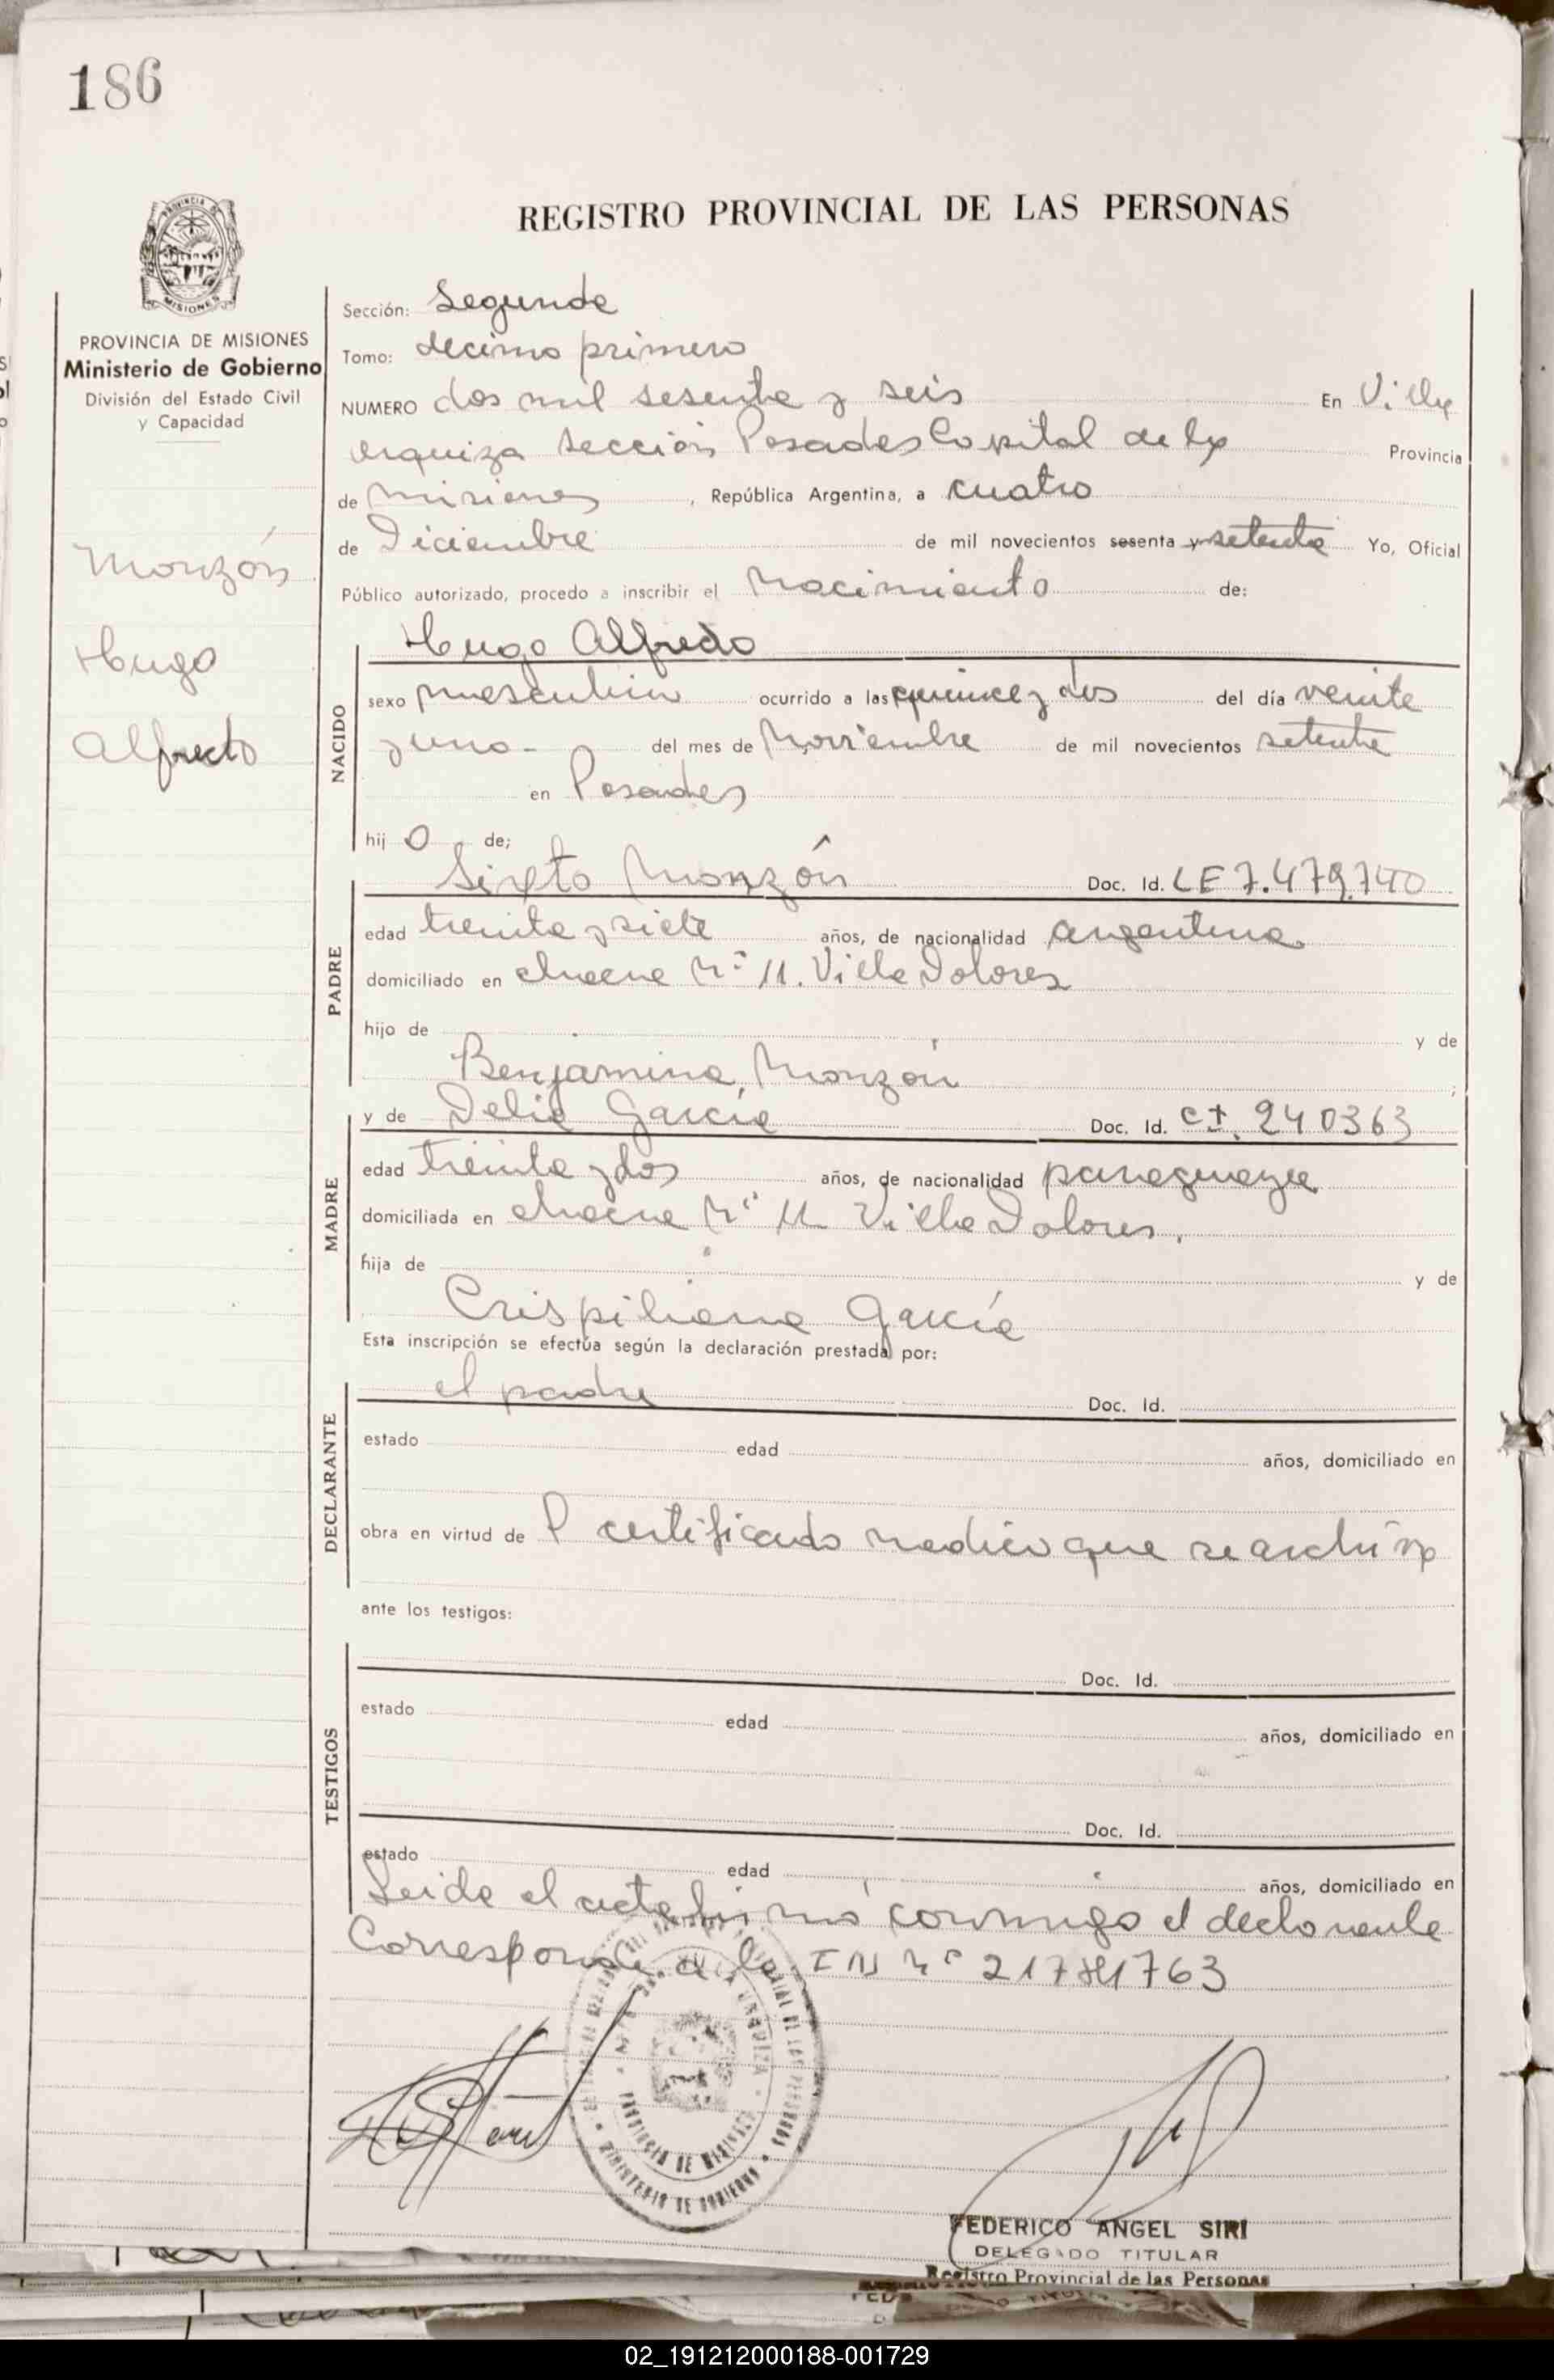 186
REGISTRO PROVINCIAL DE LAS PERSONAS
PROVINCIA DE MISIONES
Ministerio de Gobierno
División del Estado Civil
y Capacidad
Monzón
Hugo
Alfredo
Sección: Segunda
Tomo: decimo primero
NUMERO dos mil sesenta y seis En Villa
Urquiza sección Posadas Capital de la Provincia
de Misiones, República Argentina, a cuatro
de Diciembre de mil novecientos sesenta y setenta Yo, Oficial
Público autorizado, procedo a inscribir el Nacimiento de:
NACIDO
Hugo Alfredo
sexo masculino ocurrido a las quince y dos del día veinte
y uno - del mes de Noviembre de mil novecientos setenta
en Posadas
hijo de;
PADRE
Sixto Monzón Doc. Id. LE 7.479.740
edad treinta y siete años, de nacionalidad argentina
domiciliado en chacra Nº 11. Villa Dolores
hijo de y de
Benjamina Monzón ;
MADRE
y de Delia García Doc. Id. CI. 240363
edad treinta y dos años, de nacionalidad paraguaya
domiciliada en chacra Nº 11 Villa Dolores.
hija de y de
Crispiliana García
Esta inscripción se efectúa según la declaración prestada por:
DECLARANTE
el padre Doc. Id.
estado edad años, domiciliado en
obra en virtud de certificado medico que se archiva
ante los testigos:
TESTIGOS
Doc. Id.
estado edad años, domiciliado en
Doc. Id.
estado edad años, domiciliado en
Leida el acta firmó conmigo el declarante
Corresponde a la IN Nº 763
URQUIZA
PROVINCIA DE MISIONES
MINISTERIO DE GOBIERNO
FEDERICO ANGEL SIRI
DELEGADO TITULAR
Registro Provincial de las Personas
02_191212000188-001729